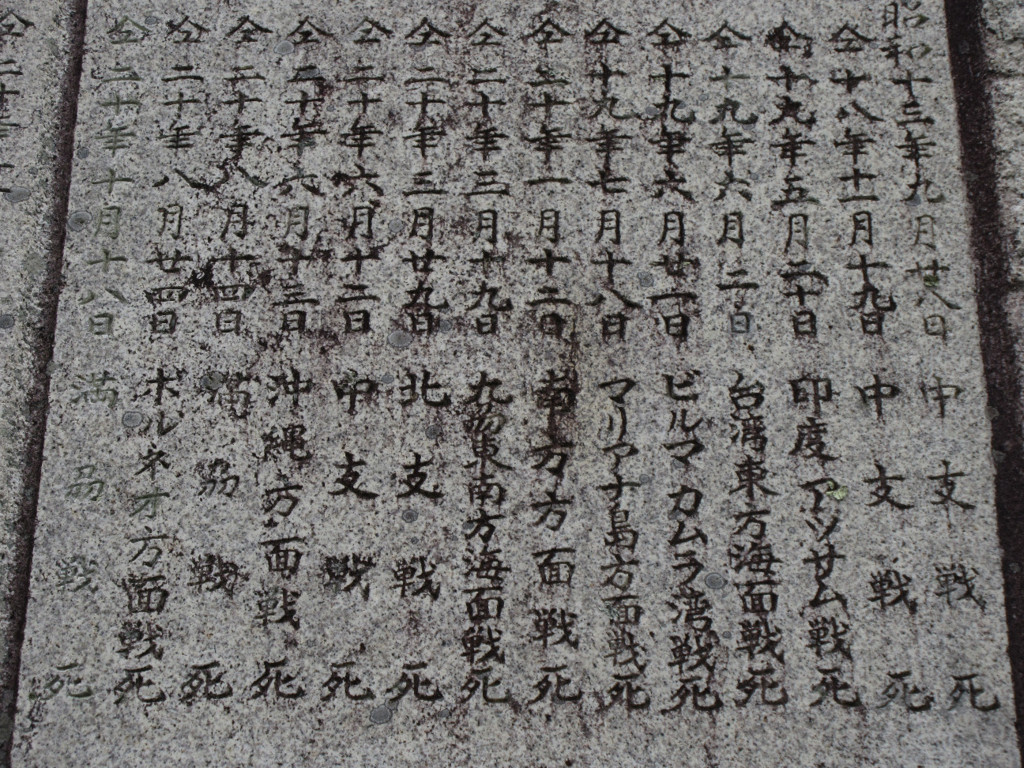 昭和十三年九月廿八日 中支戦死
仝十八年十一月十九日 中支戦死
仝十九年五月二十日 印度アッサム戦死
仝十九年六月二日 台湾東方海面戦死
仝十九年六月廿一日 ビルマカムラ湾戦死
仝十九年七月十八日 マリアナ島方面戦死
仝二十年一月十二日 南方方面戦死
仝二十年三月十九日 九刕東南方海面戦死
仝二十年三月廿九日 北支戦死
仝二十年六月十二日 中支戦死
仝二十年六月十三日 沖縄方面戦死
仝二十年八月十四日 満刕戦死
仝二十年八月廿四日 ボルネオ方面戦死
仝二十年十月十八日 満刕戦死